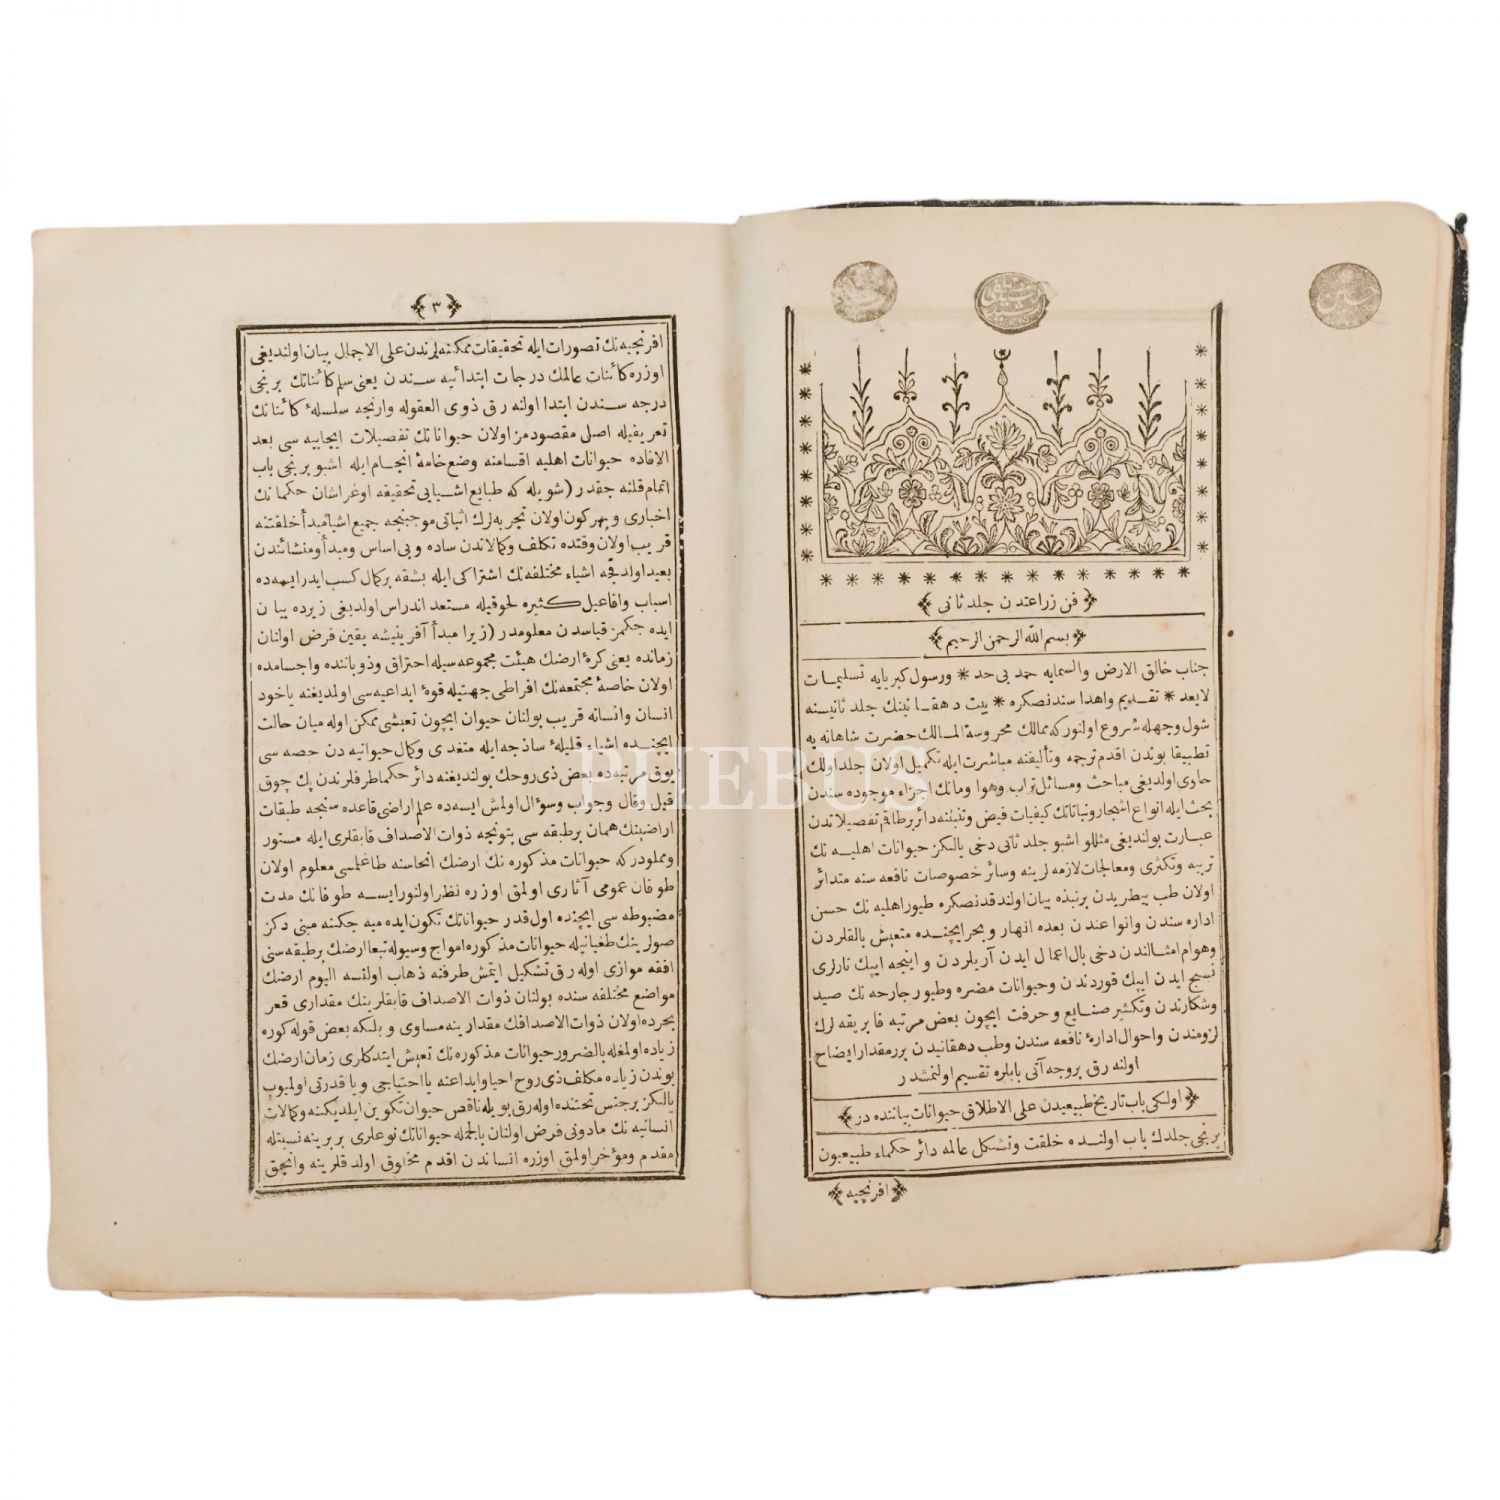 فن زراعتدن جلد ثانی
بسم الله الرحمن الرحیم
جناب خالق الارض والسمایه حمد بی حد * ورسول کبریایه تسلیمات
لایعد * تقدیم واهدا سندنصکره * بیت دهقانینك جلد ثانیسنه
شول وجهله شروع اولنورکه ممالك محروسة المسالك حضرت شاهانه یه
تطبیقا بوندن اقدم ترجمه وتألیفنه مباشرت ایله تکمیل اولان جلد اولك
حاوی اولدیغی مباحث ومسائل تراب وهوا ومانك اجزاء موجوده سندن
بحث ایله انواع اشجار ونباتاتك کیفیات فیض وتنبتنه دائر برطاقم تفصیلاتدن
عبارت بولندیغی مثللو اشبو جلد ثانی دخی یالکز حیوانات اهلیه نك
تربیه وتکثری ومعالجات لازمه لرینه وسائر خصوصات نافعه سنه متدائر
اولان طب بیطریدن برنبذه بیان اولندقدنصکره طیور اهلیه نك حسن
اداره سندن وانواعندن بعده انهار وبحر ایچنده متعیش بالقلردن
وهوام امثالندن دخی بال اعمال ایدن آریلردن و اینجه ایپك تارلری
نسیج ایدن ایپك قوردندن وحیوانات مضره وطیور جارحه نك صید
وشکارندن وتکثیر صنایع وحرفت ایچون بعض مرتبه فابریقه لرك
لزومندن واحوال ادارۀ نافعه سندن وطب دهقانیدن بررمقدار ایضاح
اولنه رق بروجه آتی بابلره تقسیم اولنمشدر
اولکی باب تاریخ طبیعیدن علی الاطلاق حیوانات بیاننده در
برنجی جلدك باب اولنده خلقت وتشکل عالمه دائر حکماء طبیعیون
افرنجیه
۳
افرنجیه نك تصورات ایله تحقیقات ممکنه لرندن علی الاجمال بیان اولندیغی
اوزره کائنات عالمك درجات ابتدائیه سندن یعنی سلم کائناتك برنجی
درجه سندن ابتدا اولنه رق ذوی العقوله وارنجه سلسلۀ کائناتك
تعریفیله اصل مقصودمز اولان حیواناتك تفصیلات ایجابیه سی بعد
الافاده حیوانات اهلیه اقسامنه وضع خامۀ انجام ایله اشبو برنجی باب
اتمام قلنه جقدر (شویله که طبایع اشیایی تحقیقه اوغراشان حکمانك
اخباری و بهرکون اولان تجربه لرك اثباتی موجبنجه جمیع اشیا مبدأ خلقتنه
قریب اولان وقتده تکلف وکمالاتدن ساده وبی اساس ومبدأ ومنشائندن
بعید اولدقجه اشیاء مختلفه نك اشتراکی ایله بشقه برکمال کسب ایدر ایسه ده
اسباب وافاعیل کثیره لحوقیله مستعد اندراس اولدیغی زیرده بیان
ایده جکمز قیاسدن معلومدر (زیرا مبدأ آفرینیشه یقین فرض اولنان
زمانده یعنی کرۀ ارضك هیئت مجموعه سیله احتراق وذوباننده واجسامده
اولان خاصۀ مجتمعه نك افراطی جهتیله قوۀ ابداعیه سی اولمدیغنه یاخود
انسان وانسانه قریب بولنان حیوان ایچون تعیشی ممکن اوله میان حالت
ایچنده اشیاء قلیلۀ ساذجه ایله متغدی وکمال حیوانیه دن حصه سی
یوق مرتبه ده بعض ذی روحك بولندیغنه دائر حکما طرفلرندن پك چوق
قیل وقال وجواب وسؤال اولمش ایسه ده علم اراضی قاعده سنجه طبقات
اراضینك همان برطبقه سی بتونجه ذوات الاصداف قابقلری ایله مستور
ومملودرکه حیوانات مذکوره نك ارضك انحاسنه طاغلمسی معلوم اولان
طوفان عمومی آثاری اولمق اوزره نظر اولنور ایسه طوفانك مدت
مضبوطه سی ایچنده اول قدر حیواناتك تکون ایده میه جکنه مبنی دکز
صولرینك طغیانیله حیوانات مذکوره امواج وسیوله تبعا ارضك برطبقه سنی
افقه موازی اوله رق تشکیل ایتمش طرفنه ذهاب اولنه الیوم ارضك
مواضع مختلفه سنده بولنان ذوات الاصداف قابقلرینك مقداری قعر
بحرده اولان ذوات الاصدافك مقدارینه مساوی و بلکه بعض قوله کوره
زیاده اولمغله بالضرور حیوانات مذکوره نك تعیش ایتدکلری زمان ارضك
بوندن زیاده مکلف ذی روح احیا وابداعنه یا احتیاجی ویا قدرتی اولمیوب
یالکز برجنس تحتنده اوله رق بویله ناقص حیوان تکوین ایلدیکنه وکمالات
انسانیه نك مادونی فرض اولنان بالجمله حیواناتك نوعلری بربرینه نسبتله
مقدم ومؤخر اولمق اوزره انساندن اقدم مخلوق اولدقلرینه وانجق
PHEBUS